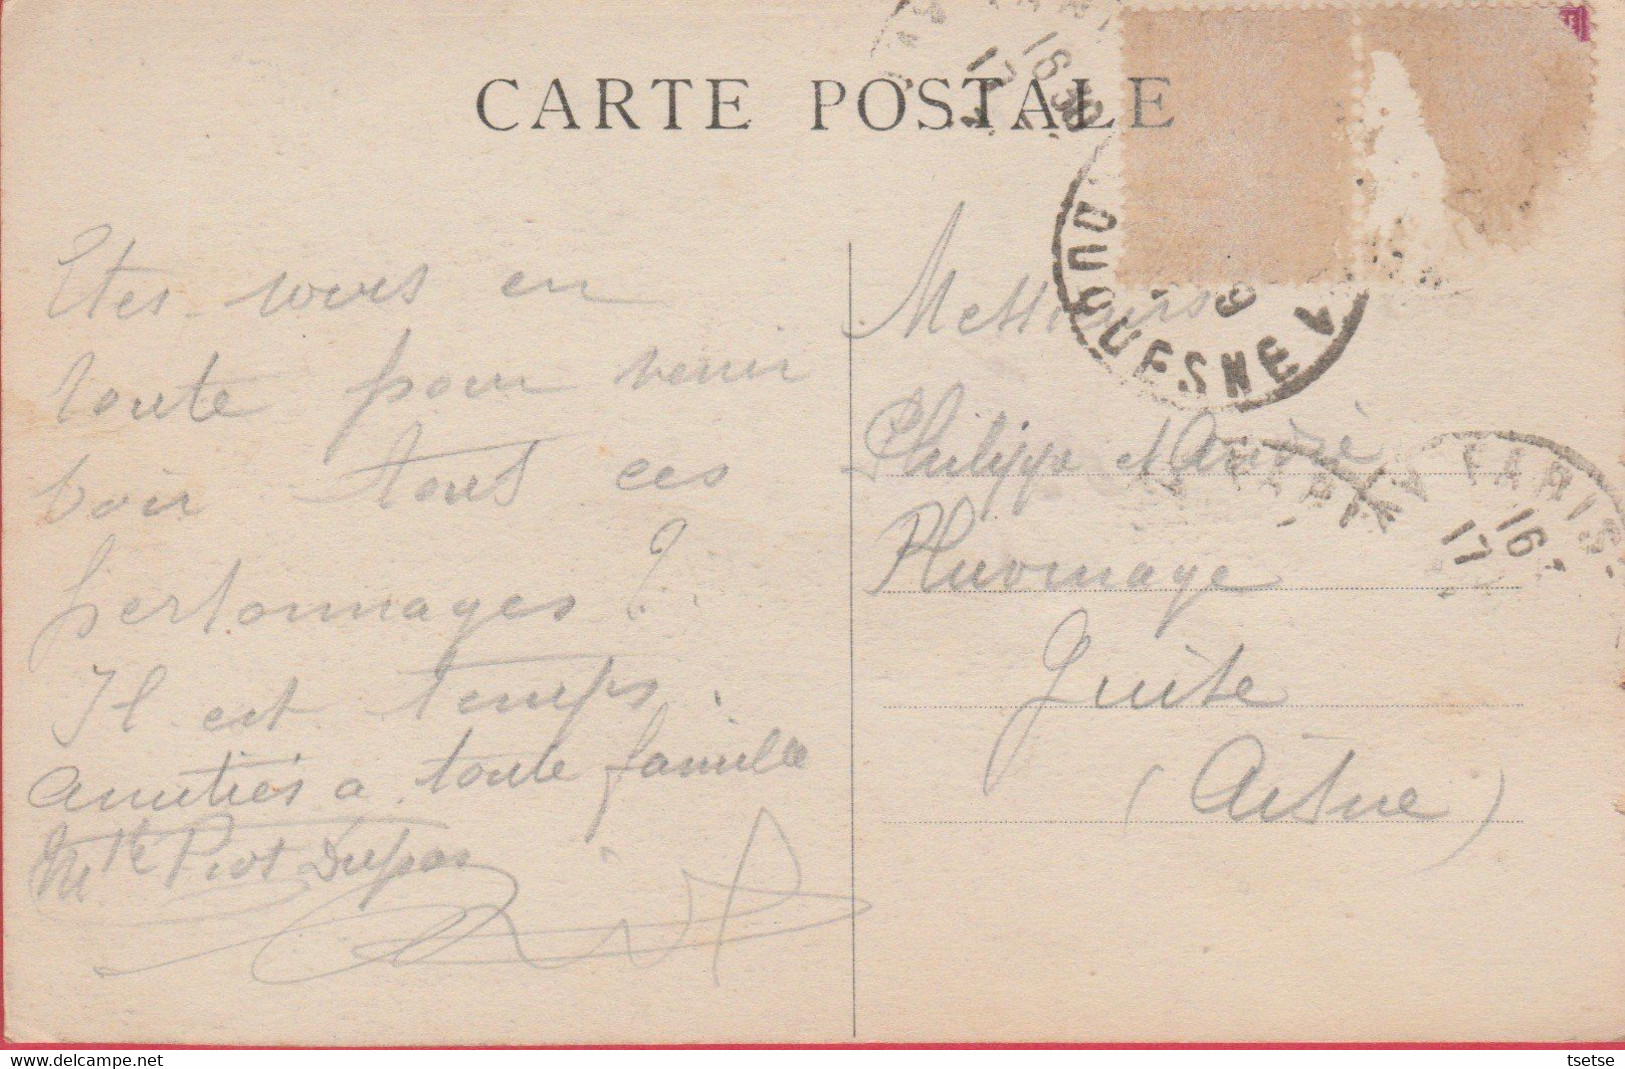 CARTE POSTALE
Etes vous en
route pour venir
voir tous ces
personnages ?
Il est temps.
Amitiés à toute famille
Mlle Piot Dupas
Messieurs
Philippe et André
Pluvinage
Guise
(Aisne)
DU QUESNE
16
17
PARIS
16
17
tsetse